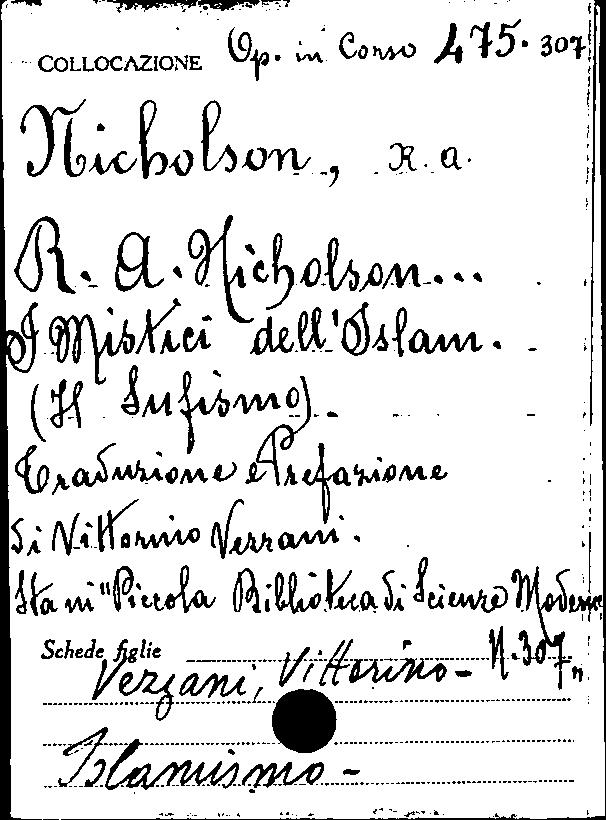 COLLOCAZIONE Op. in Corso 475. 307
Nicholson, R. A.
R. A. Nicholson...
I Mistici dell'Islam.
(Il Sufismo).
Traduzione e Prefazione
di Vittorino Vezzani.
Sta in "Piccola Biblioteca di Scienze Moderne
N. 307"
Schede figlie
Vezzani, Vittorino -
Islamismo -